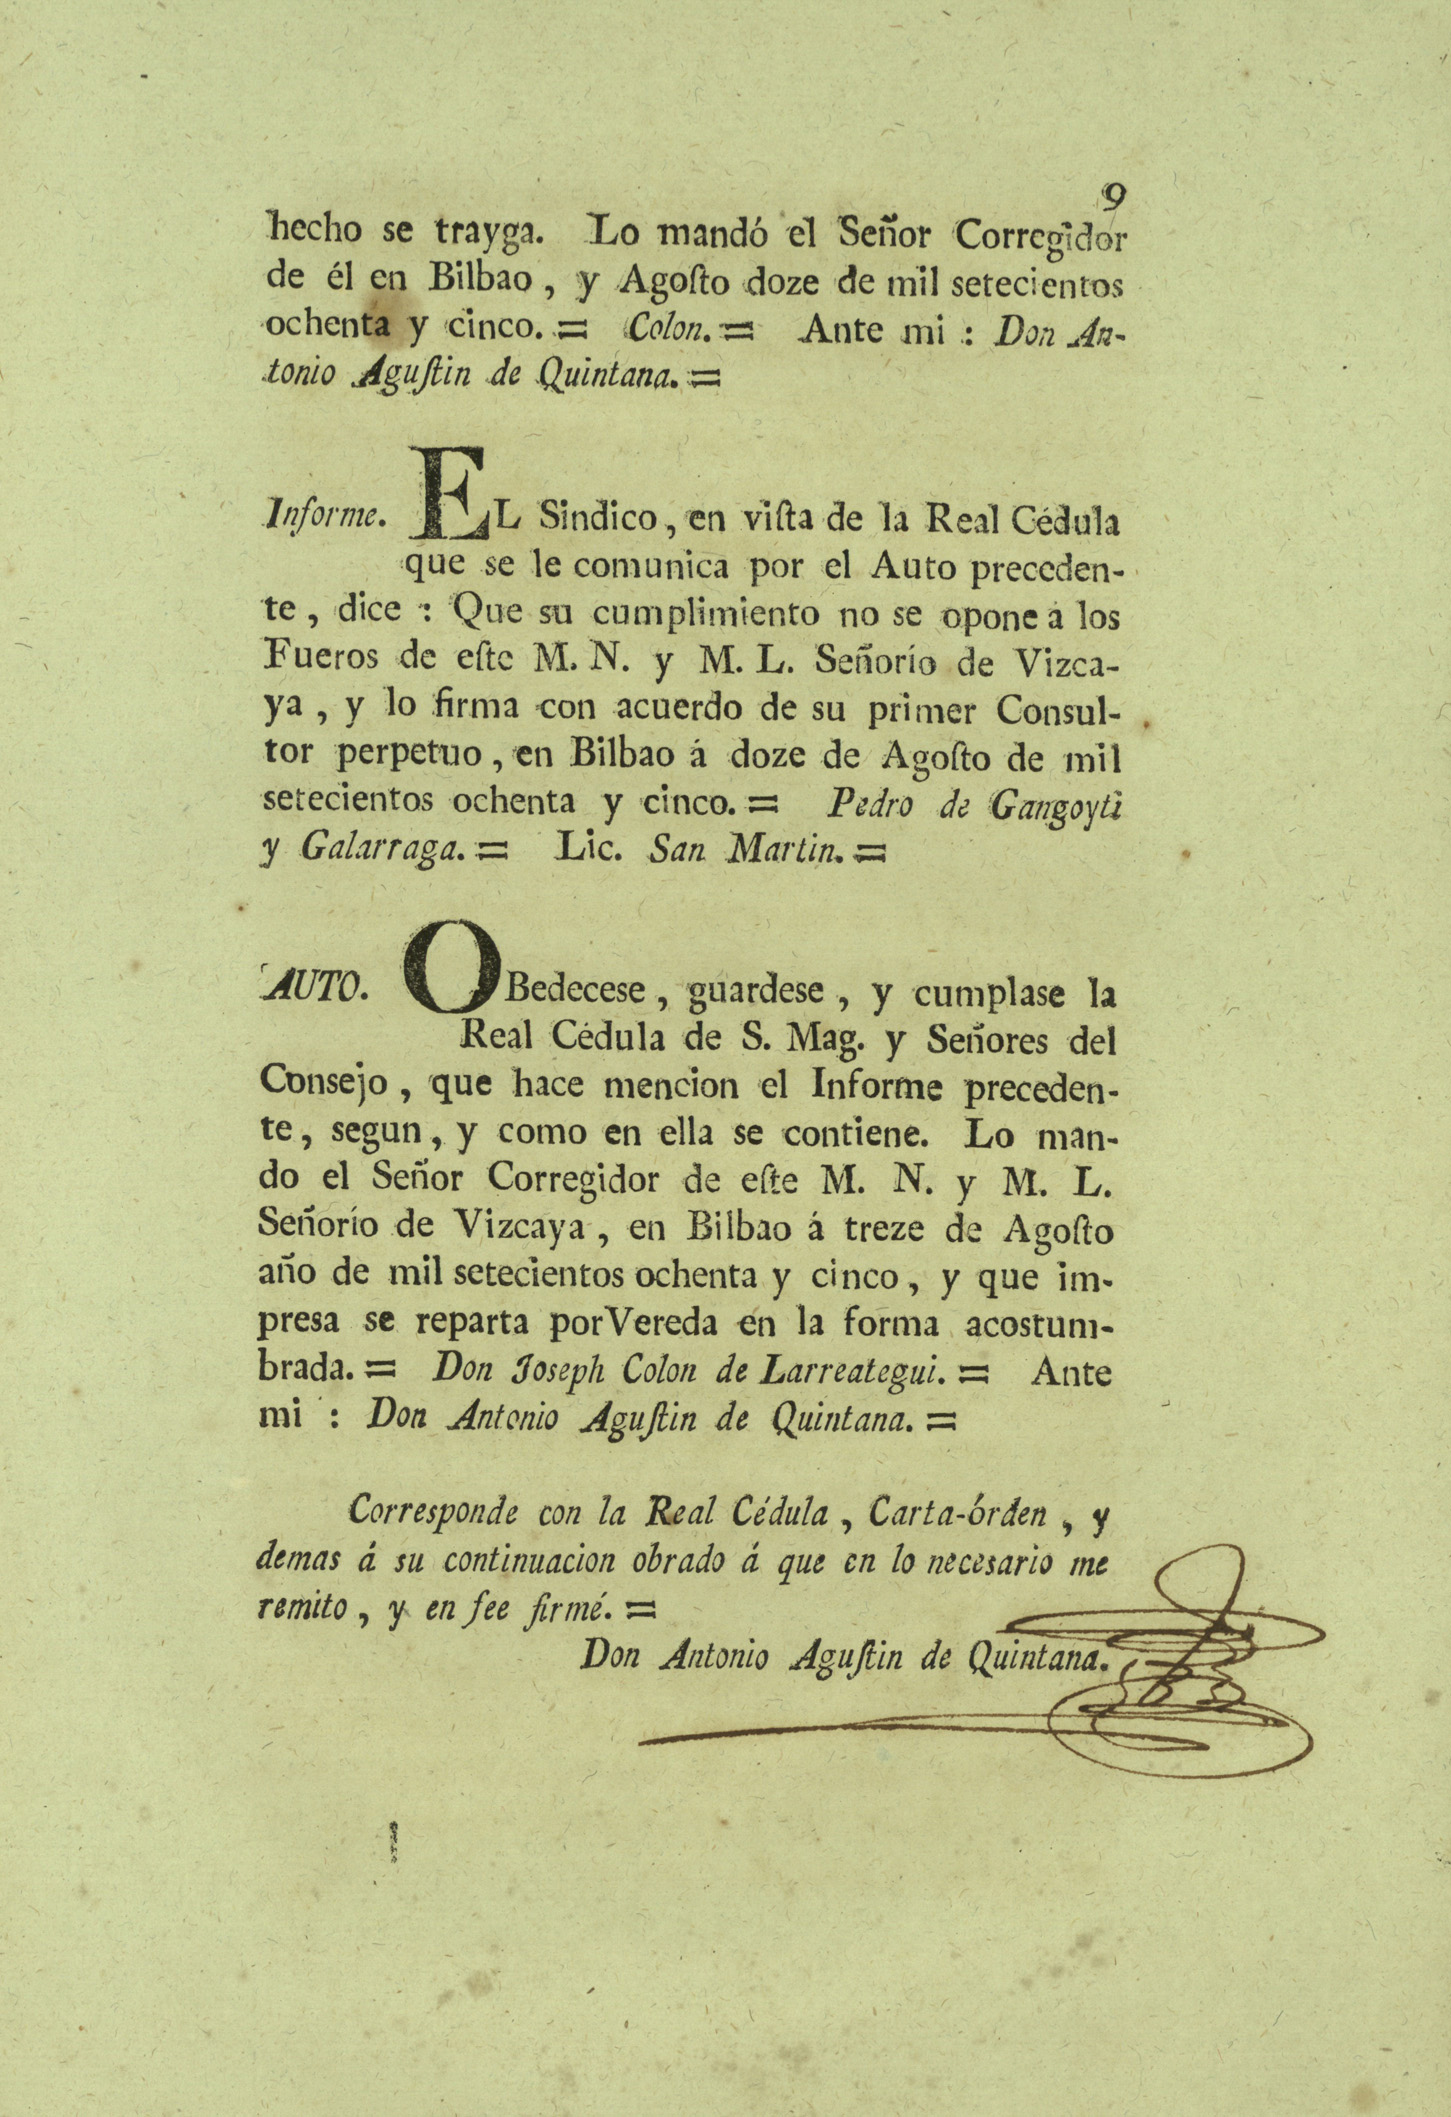 9
hecho se trayga. Lo mandó el Señor Corregidor
de él en Bilbao, y Agoſto doze de mil setecientos
ochenta y cinco. = Colon. = Ante mi : Don An-
tonio Aguſtin de Quintana. =
Informe. EL Sindico, en viſta de la Real Cédula
que se le comunica por el Auto preceden-
te, dice : Que su cumplimiento no se opone á los
Fueros de eſte M. N. y M. L. Señorío de Vizca-
ya, y lo firma con acuerdo de su primer Consul-
tor perpetuo, en Bilbao á doze de Agoſto de mil
setecientos ochenta y cinco. = Pedro de Gangoyti
y Galarraga. = Lic. San Martin. =
AUTO. OBedecese, guardese, y cumplase la
Real Cédula de S. Mag. y Señores del
Consejo, que hace mencion el Informe preceden-
te, segun, y como en ella se contiene. Lo man-
do el Señor Corregidor de eſte M. N. y M. L.
Señorío de Vizcaya, en Bilbao á treze de Agoſto
año de mil setecientos ochenta y cinco, y que im-
presa se reparta por Vereda en la forma acostum-
brada. = Don Joseph Colon de Larreategui. = Ante
mi : Don Antonio Aguſtin de Quintana. =
Corresponde con la Real Cédula, Carta-órden, y
demas á su continuacion obrado á que en lo necesario me
remito, y en fee firmé. =
Don Antonio Aguſtin de Quintana.